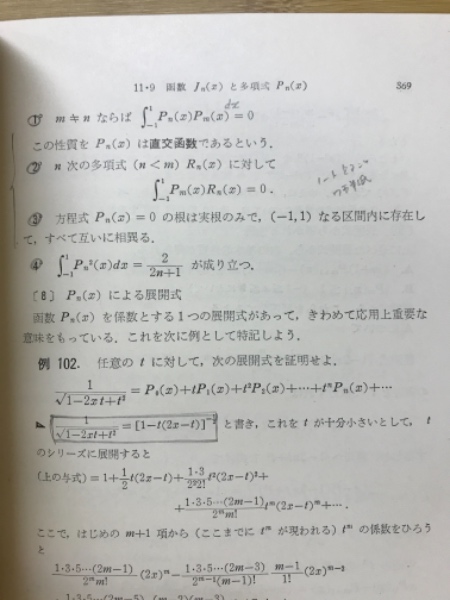 11・9 函数 Jn(x) と多項式 Pn(x) 369
dx
① m≠n ならば ∫_{-1}^{1} Pn(x)Pm(x)=0
この性質を Pn(x) は直交函数であるという.
② n 次の多項式 (n<m) Rn(x) に対して
∫_{-1}^{1} Pm(x)Rn(x)=0.
③ 方程式 Pn(x)=0 の根は実根のみで, (-1,1) なる区間内に存在し
て, すべて互いに相異る.
④ ∫_{-1}^{1} Pn²(x)dx = 2/(2n+1) が成り立つ.
〔8〕 Pn(x) による展開式
函数 Pn(x) を係数とする1つの展開式があって, きわめて応用上重要な
意味をもっている. これを次に例として特記しよう.
例 102. 任意の t に対して, 次の展開式を証明せよ.
1/√(1-2xt+t²) = P₀(x)+tP₁(x)+t²P₂(x)+⋯+tⁿPn(x)+⋯
1/√(1-2xt+t²) = [1-t(2x-t)]^{-1/2} と書き, これを t が十分小さいとして, t
のシリーズに展開すると
(上の与式)=1+1/2 t(2x-t)+1・3/(2²2!) t²(2x-t)²+
+1・3・5⋯(2m-1)/(2^m m!) t^m(2x-t)^m+⋯.
ここで, はじめの m+1 項から (ここまでに t^m が現われる) t^m の係数をひろう
と
1・3・5⋯(2m-1)/(2^m m!) (2x)^m - 1・3・5⋯(2m-3)/(2^{m-1}(m-1)!) (m-1)/1! (2x)^{m-2}